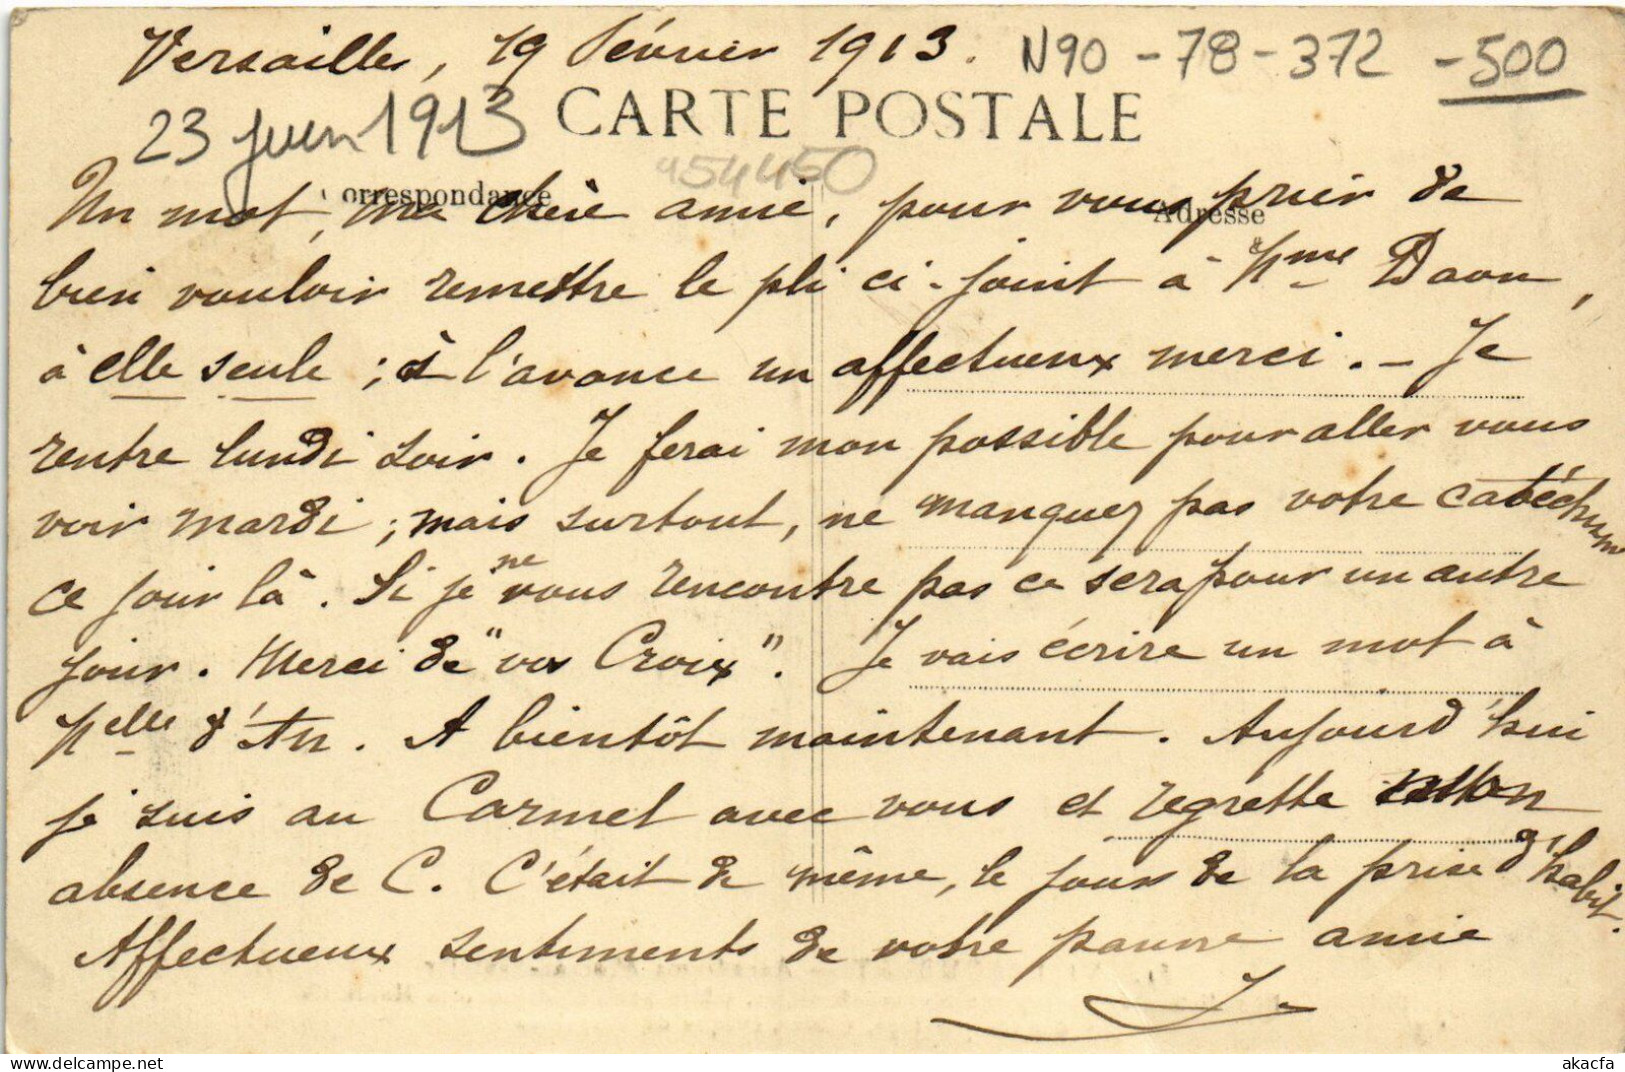 Versailles, 19 Février 1913. N90-78-372 -500
23 juin 1913 CARTE POSTALE
454450
orrespondance
Adresse
Un mot, ma chère amie, pour vous prier de
bien vouloir remettre le pli ci-joint à Mme Daon,
à elle seule ; à l'avance un affectueux merci. - Je
rentre lundi soir. Je ferai mon possible pour aller vous
voir mardi ; mais surtout, ne manquez pas votre catéchum
ce jour là. Si je ne vous rencontre pas ce sera pour un autre
jour. Merci de "vos Croix". Je vais écrire un mot à
Melle d'An. A bientôt maintenant. Aujourd'hui
je suis au Carmel avec vous et regrette
absence de C. C'était de même, le jour de la prise d'habit.
Affectueux sentiments de votre pauvre amie
J.
akacfa